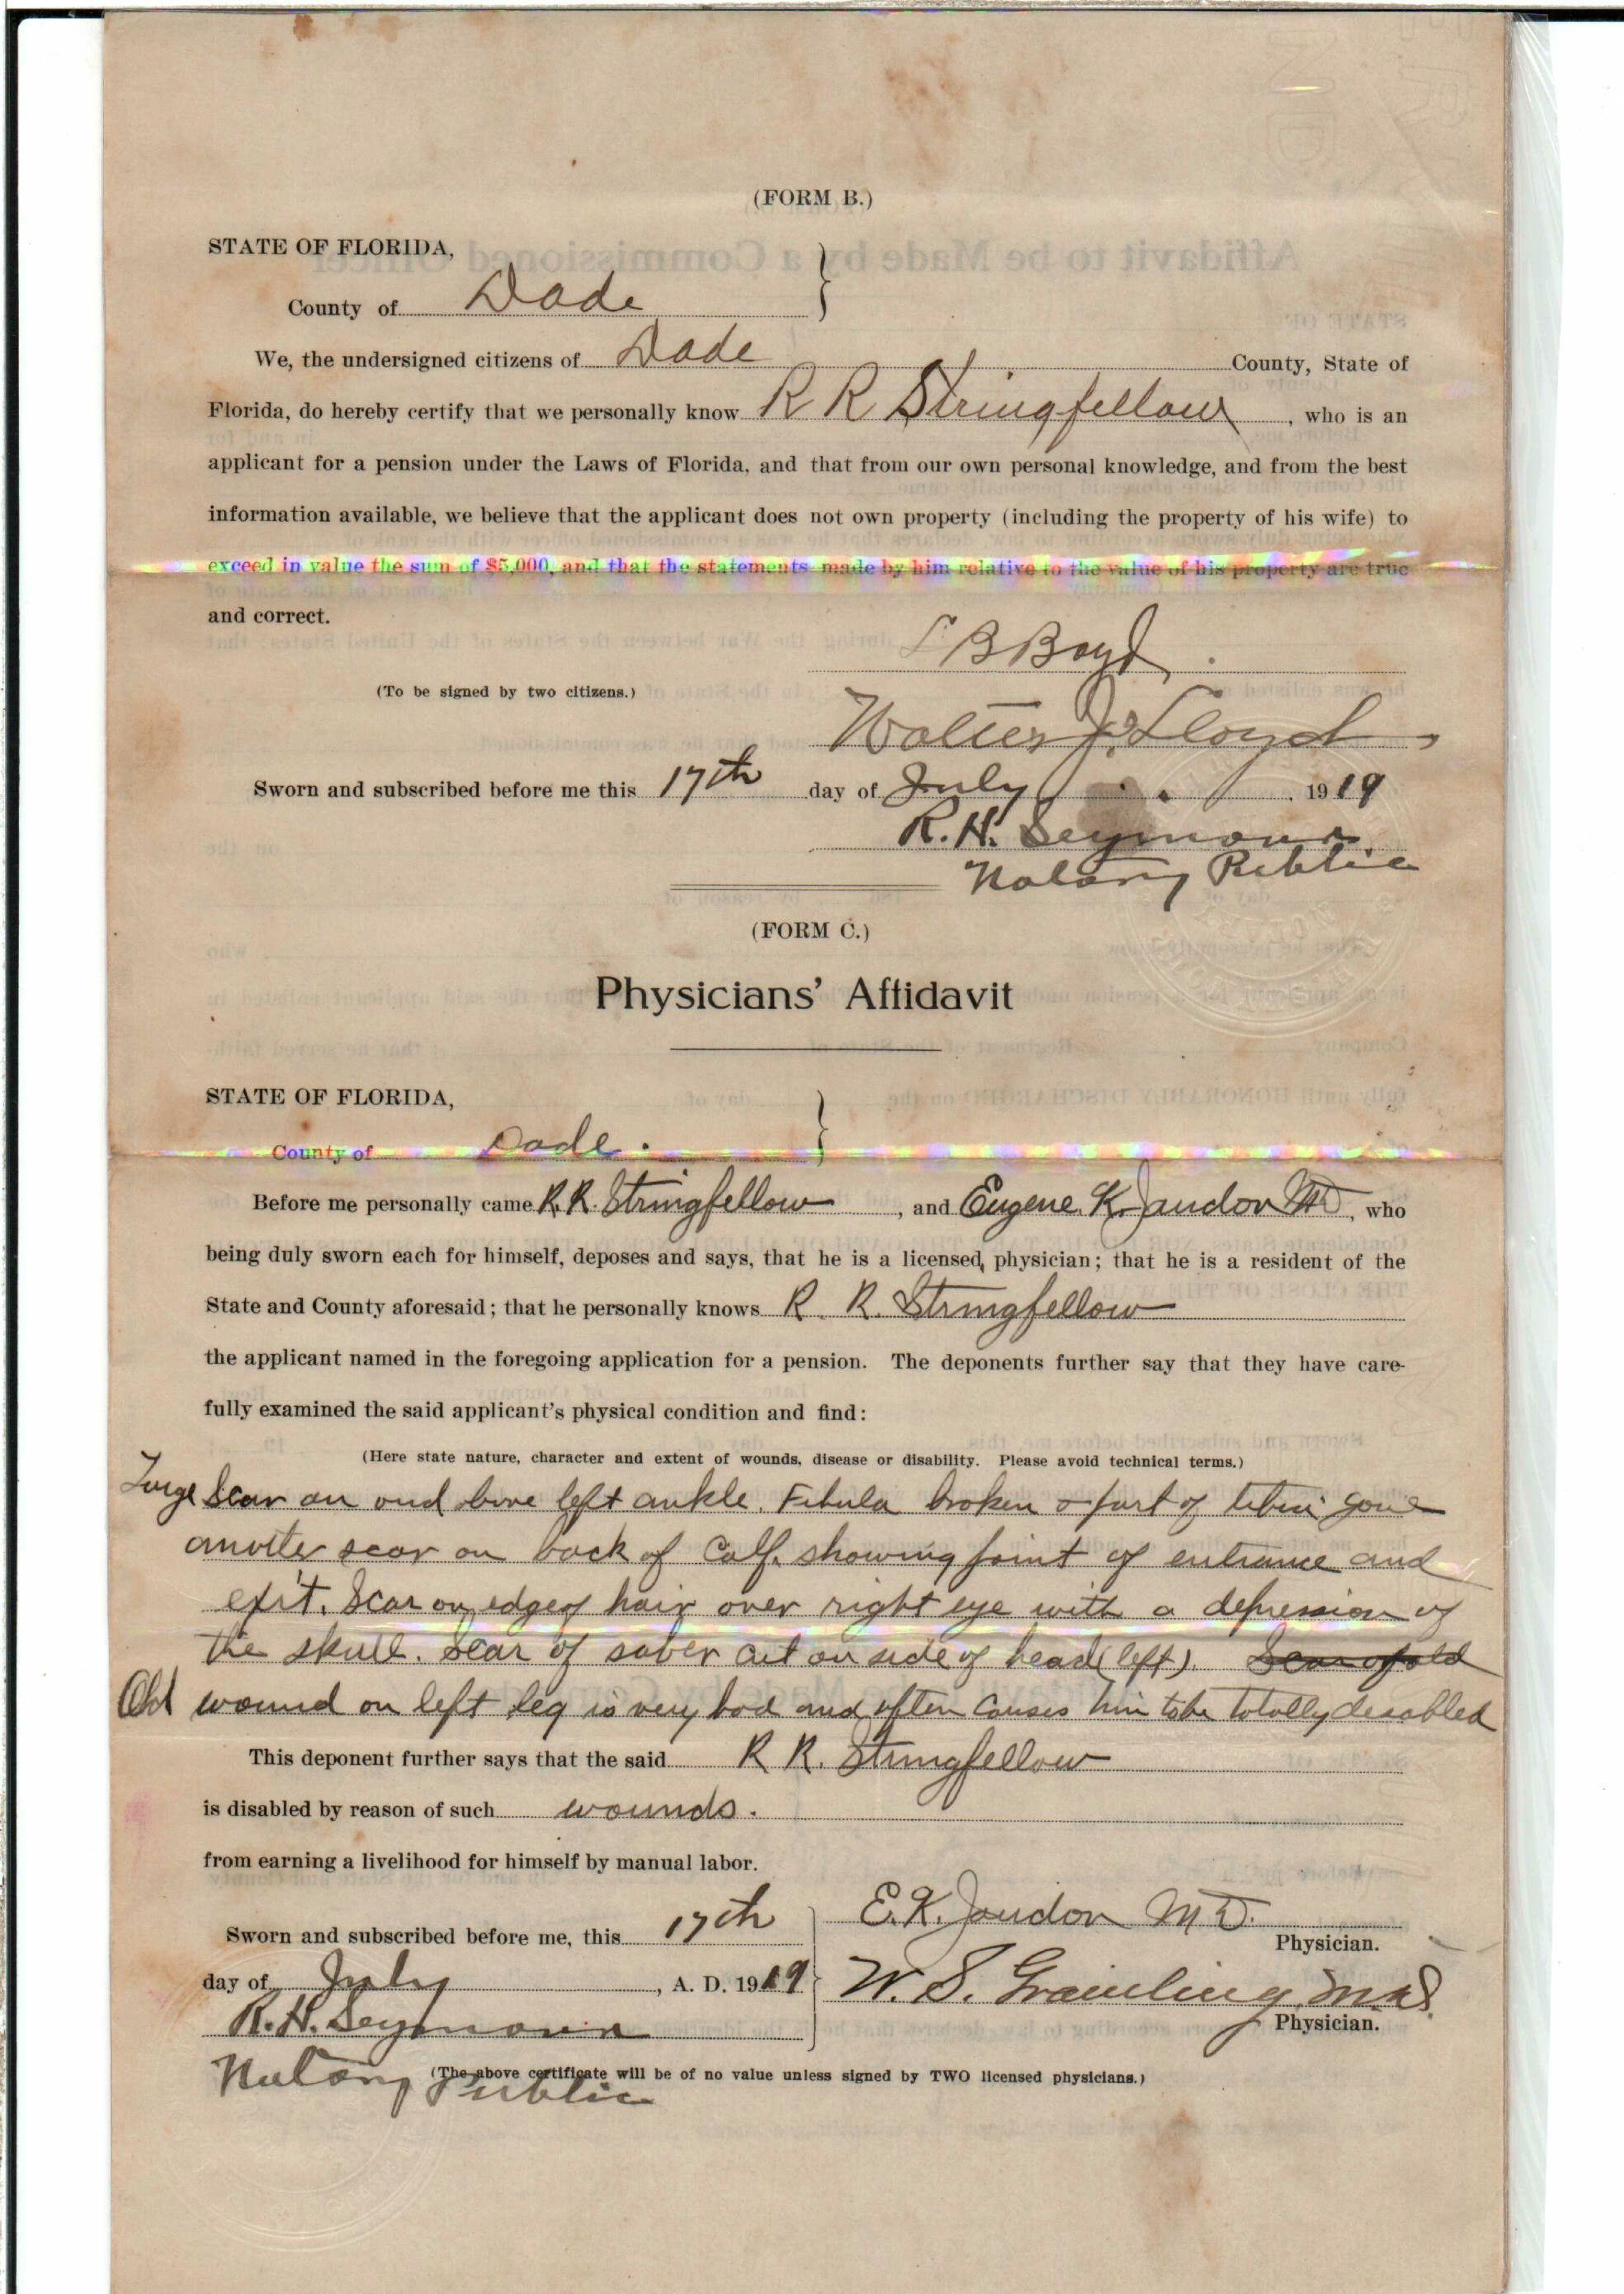 (FORM B.)
STATE OF FLORIDA,
County of Dade
We, the undersigned citizens of Dade County, State of
Florida, do hereby certify that we personally know R R Stringfellow, who is an
applicant for a pension under the Laws of Florida, and that from our own personal knowledge, and from the best
information available, we believe that the applicant does not own property (including the property of his wife) to
exceed in value the sum of $5,000, and that the statements made by him relative to the value of his property are true
and correct.
B Boyd
(To be signed by two citizens.)
Walter J. Lloyd
Sworn and subscribed before me this 17th day of July, 1919
R. H. Seymour
Notary Public
(FORM C.)
Physicians' Affidavit
STATE OF FLORIDA,
County of Dade.
Before me personally came R. R. Stringfellow, and Eugene K. Jaudon MD, who
being duly sworn each for himself, deposes and says, that he is a licensed physician; that he is a resident of the
State and County aforesaid; that he personally knows R. R. Stringfellow
the applicant named in the foregoing application for a pension. The deponents further say that they have care-
fully examined the said applicant's physical condition and find:
(Here state nature, character and extent of wounds, disease or disability. Please avoid technical terms.)
Large Scar on and above left ankle. Fibula broken & part of tibia gone
another scar on back of Calf. showing point of entrance and
exit. Scar on edge of hair over right eye with a depression of
the skull. Scar of saber cut on side of head (left). Scar of old
Old wound on left leg is very bad and often causes him to be totally disabled
This deponent further says that the said R R. Stringfellow
is disabled by reason of such wounds.
from earning a livelihood for himself by manual labor.
Sworn and subscribed before me, this 17th
day of July, A. D. 1919
R. H. Seymour
Notary Public
E. K. Jaudon MD.
Physician.
W. S. Gramling, M.D.
Physician.
(The above certificate will be of no value unless signed by TWO licensed physicians.)